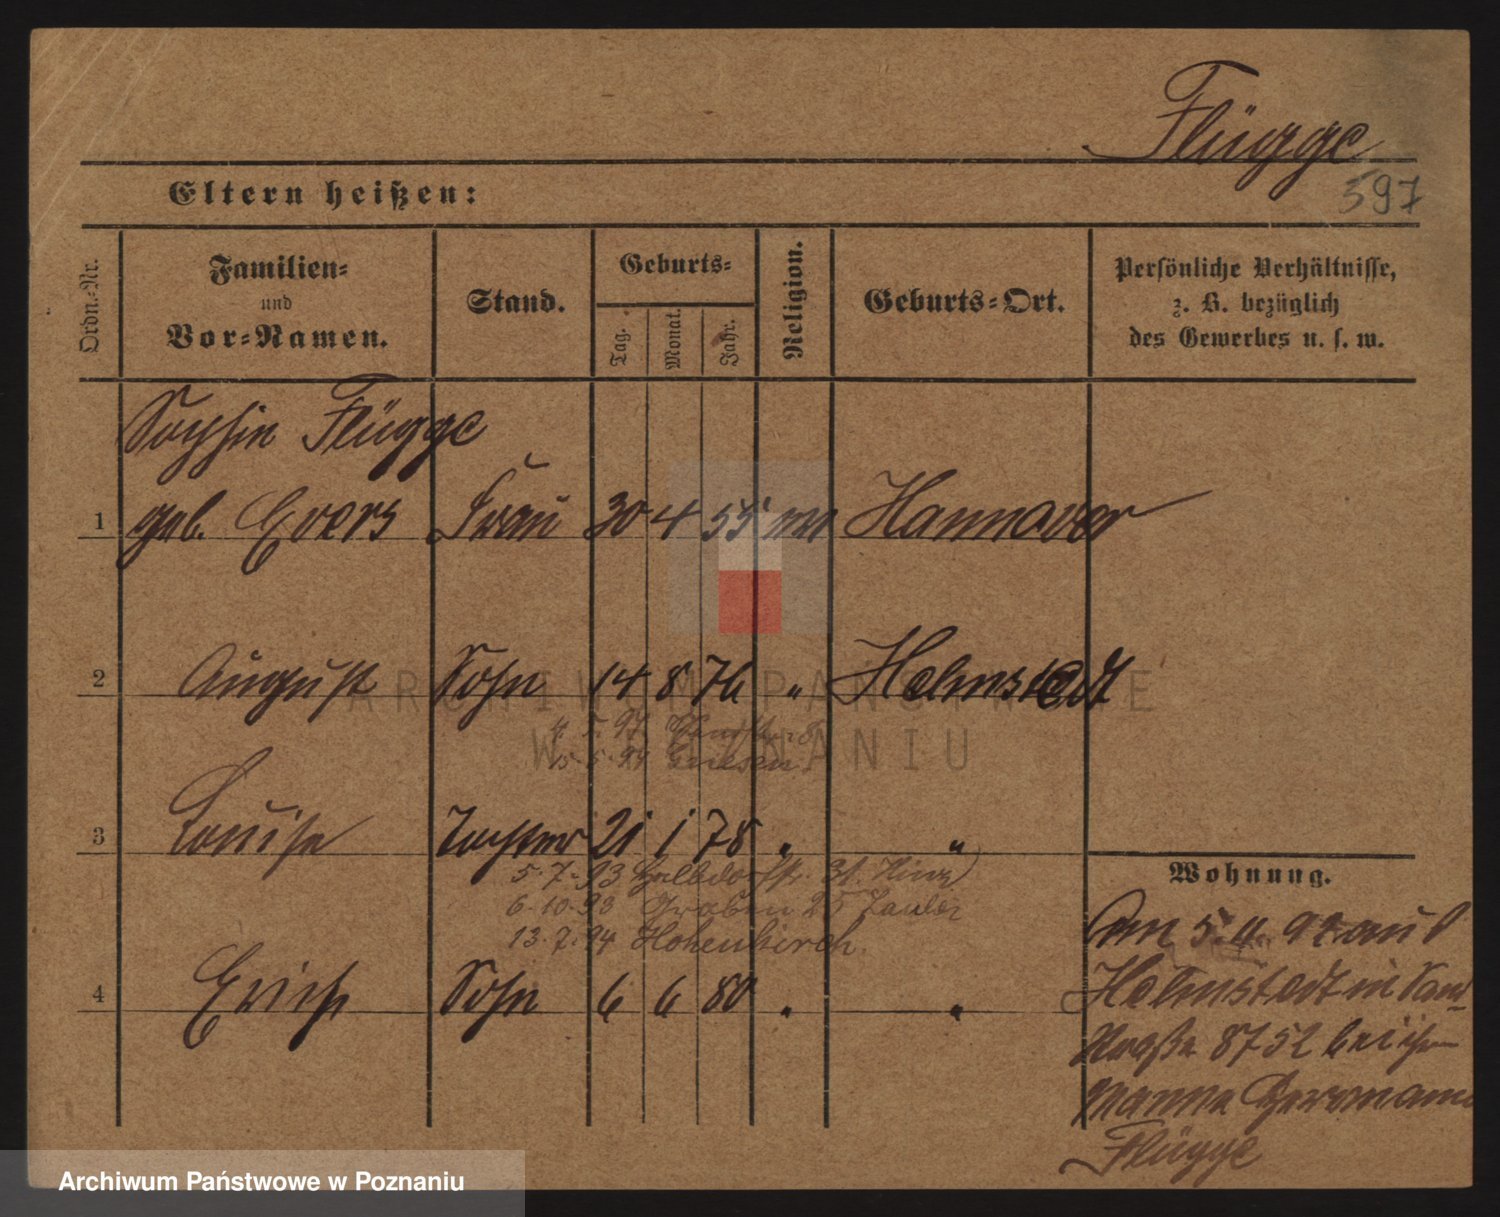 Flügge
597
Eltern heißen:
Ordn.-Nr.
Familien-
und
Vor-Namen.
Stand.
Geburts-
Tag.
Monat.
Jahr.
Religion.
Geburts-Ort.
Persönliche Verhältnisse,
z. B. bezüglich
des Gewerbes u. s. w.
Sophie Flügge
1 geb. Evers Frau 30 4 55 Hannover
2 August Sohn 14 8 76 " Helmstedt
ARCHIWUM PAŃSTWOWE
W POZNANIU
5. 94 Gnesen
3 Louise Tochter 21 1 78 " "
5.7.93 Halbdorfstr. 31.
6.10.93 Graben 25
13.7.94 Hohenkirch
4 Erich Sohn 6 6 80 " "
Wohnung.
Am 5.4. 92 aus
Helmstedt in
Straße 8752 bei ihrem
Manne Herrmann
Flügge
Archiwum Państwowe w Poznaniu